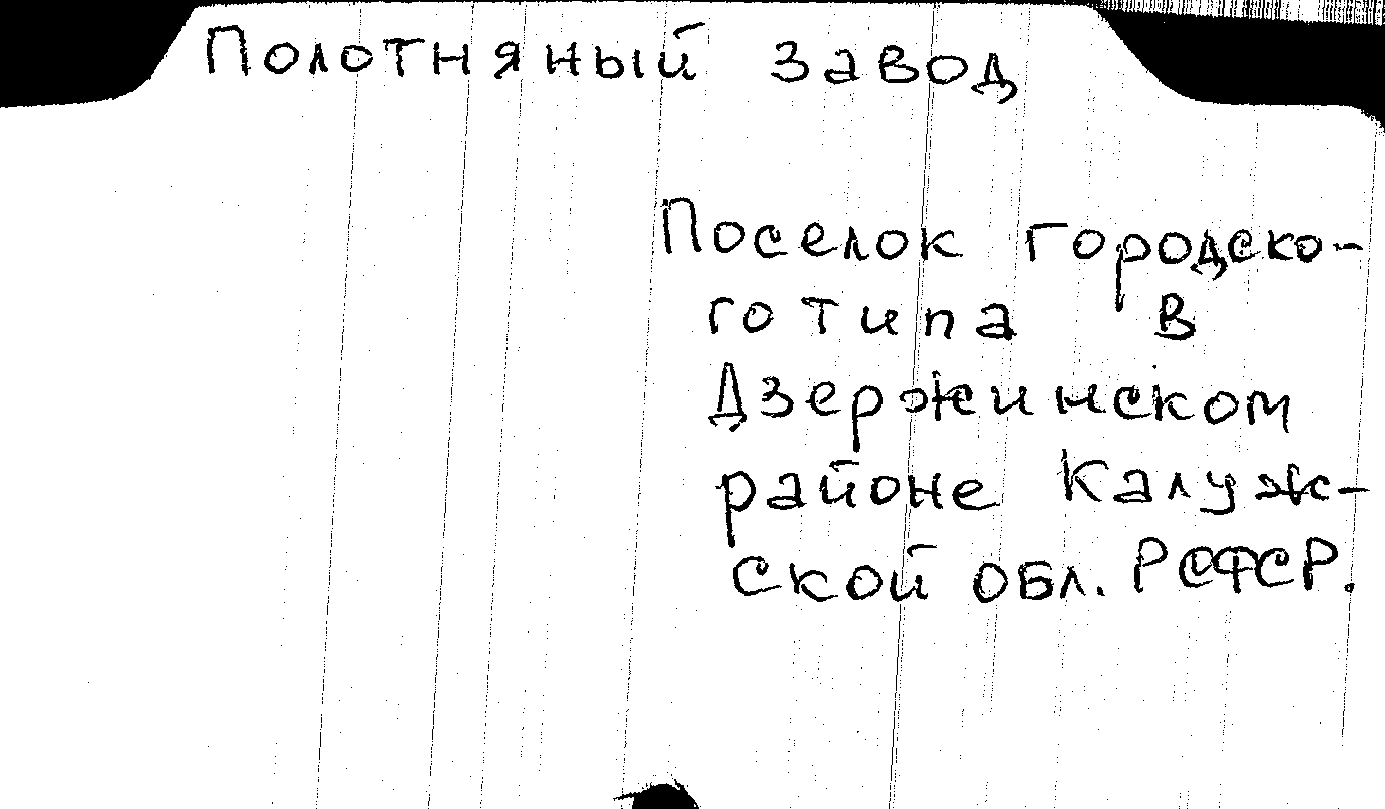 Полотняный завод
Поселок городско-
го типа в
Дзержинском
районе Калуж-
ской обл. РСФСР.